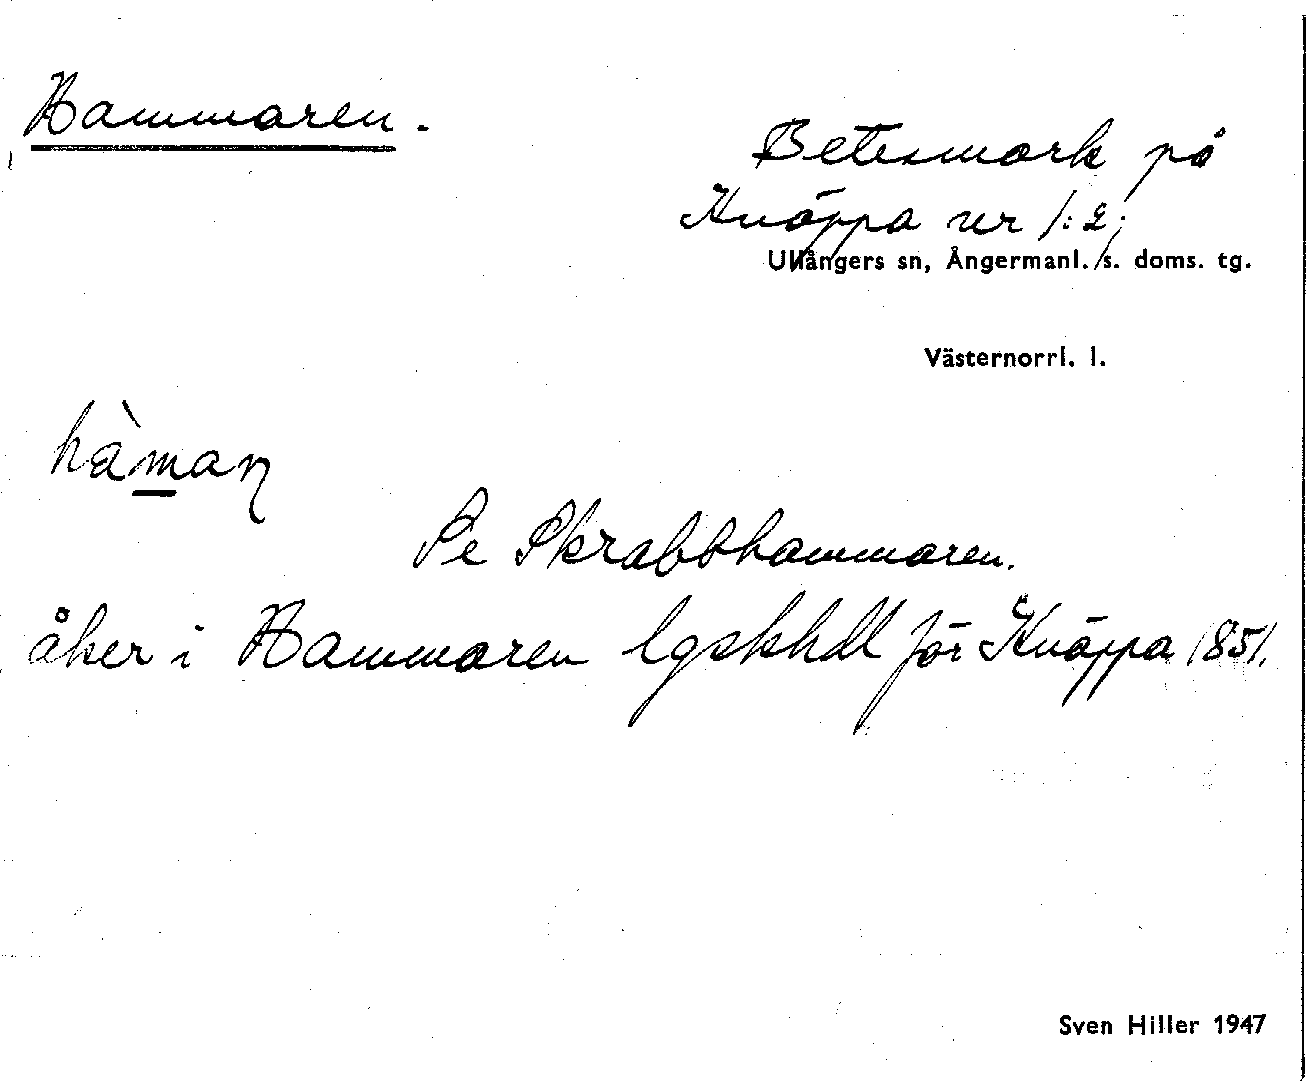 Hammaren.
Betesmark på
Knäppa nr 1:2;
Ullångers sn, Ångermanl. s. doms. tg.
Västernorrl. l.
hàman
Se Skrabbhammaren.
åker i Hammaren lgskhdl för Knäppa 1851.
Sven Hiller 1947